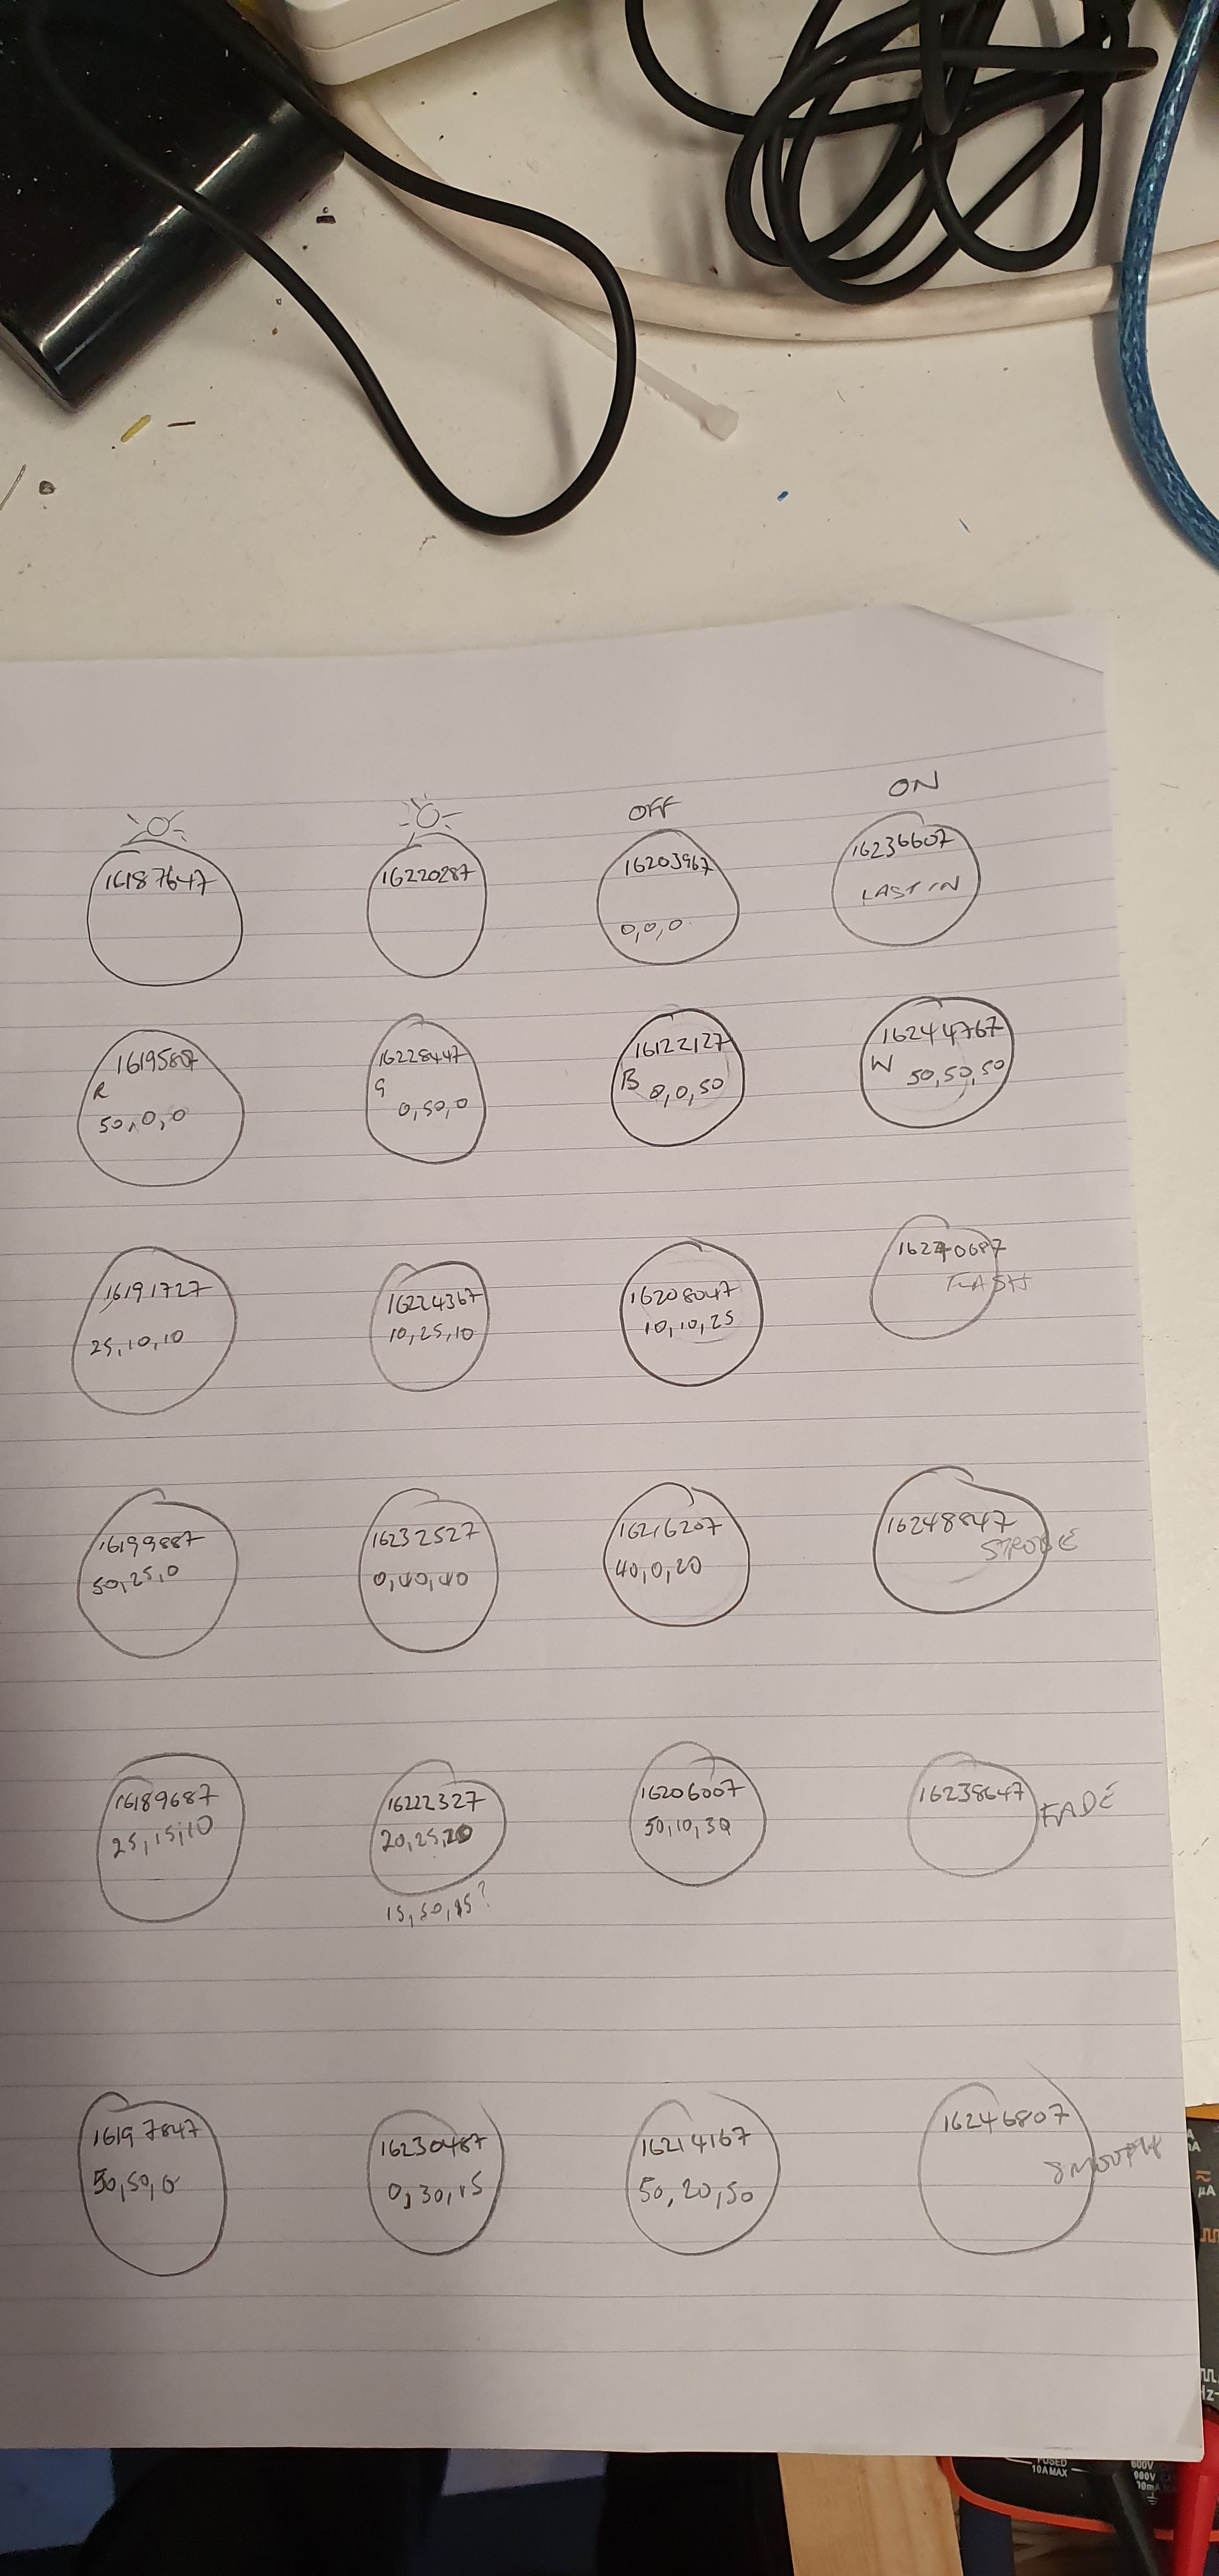 OFF
ON
16187647
16220287
16203967
16236607
0,0,0
LAST IN
16195807
16228447
16122127
16244767
R
G
B
W
50,0,0
0,50,0
0,0,50
50,50,50
16191727
16224367
16208047
16240687
25,10,10
10,25,10
10,10,25
FLASH
16199887
16232527
16216207
16248847
50,25,0
0,40,40
40,0,20
STROBE
16189687
16222327
16206007
16238647
25,15,10
20,25,20
50,10,30
FADE
15,50,15?
16197847
16230487
16214167
16246807
50,50,0
0,30,15
50,20,50
SMOOTH
FUSED
10A MAX
600V
µA